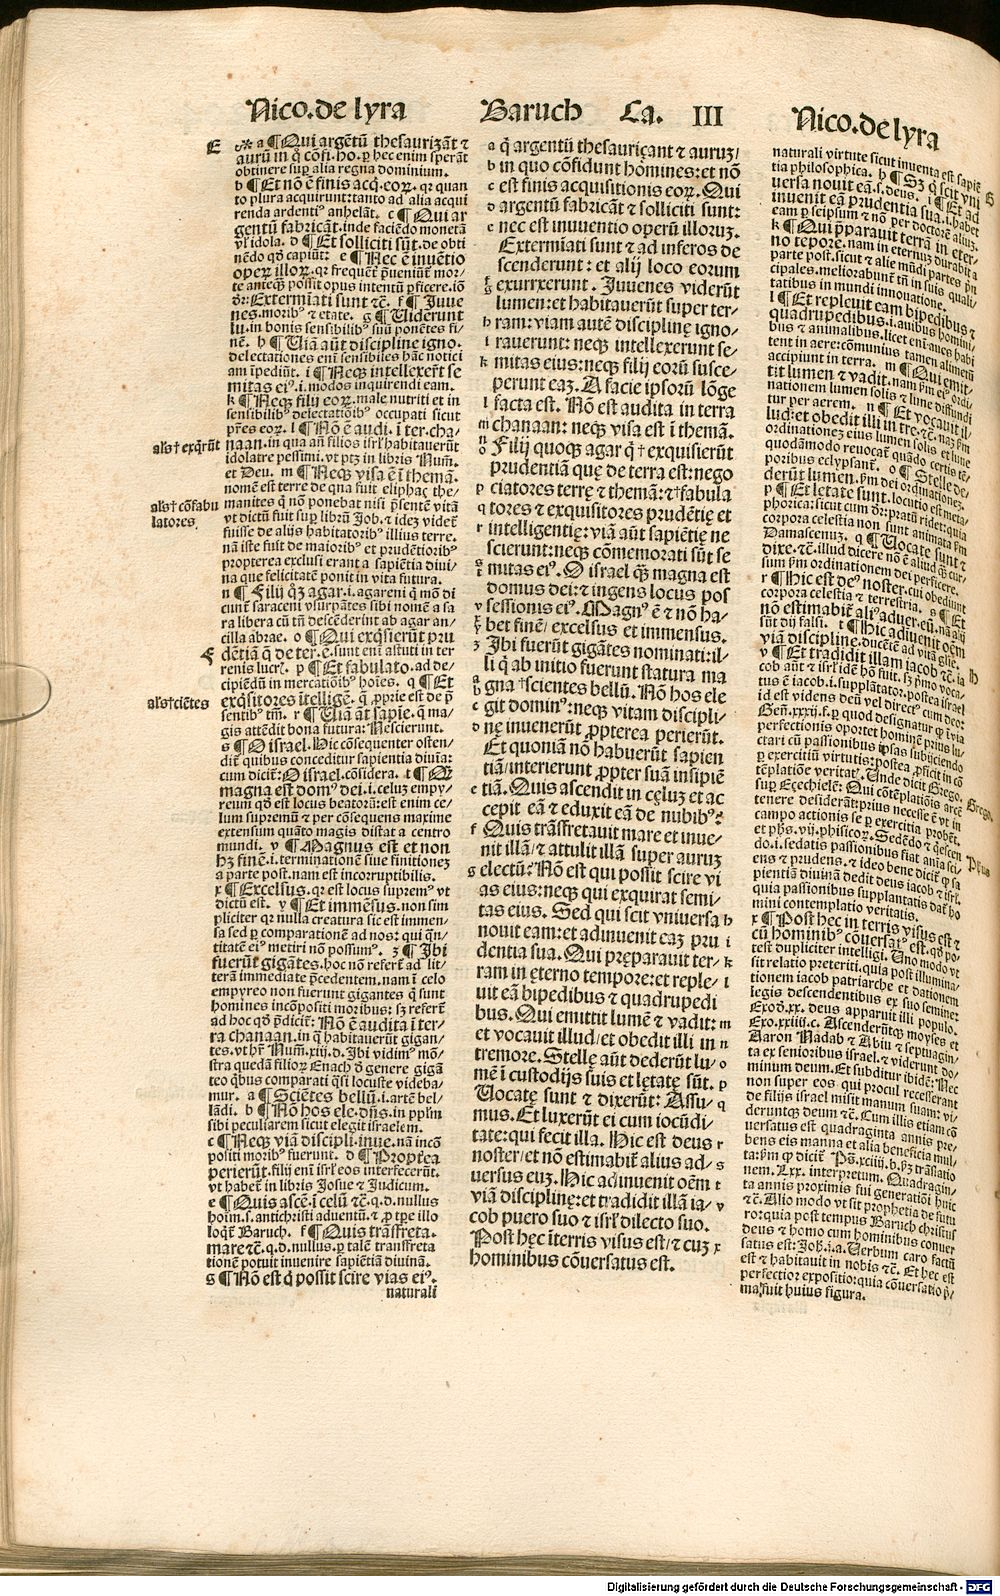 Nico.de lyra
Baruch Ca. III
Nico.de lyra
E a ¶ Qui argētū thesaurizāt ⁊
aurū in q̄ cōfi.ho.ꝑ hec enim sperāt
obtinere suꝑ alia regna dominium.
b ¶ Et nō ē finis acq̄.eoꝝ. qꝛ quan
to plura acquirunt:tanto ad alia acqui
renda ardentiꝰ anhelāt. c ¶ Qui ar
gentū fabricāt.inde faciēdo monetā
vl̓ idola. d ¶ Et solliciti sūt.de obti
nēdo qd̓ capiūt: e ¶ Nec ē inuētio
opeꝝ illoꝝ.qꝛ frequēt̓ p̄ueniūt mor/
te anteqꝫ possit opus intentū ꝑficere.iō
dꝛ:Extermīati sunt ⁊c̄. f ¶ Juue
nes.moribꝰ ⁊ etate. g ¶ Uiderunt
lu.in bonis sensibilibꝰ suū ponētes fi/
nē. h ¶ Uiā aūt discipline igno.
delectationes enī sensibiles hāc notici
am īpediūt. i ¶ Neqꝫ intellexer̄t se
mitas eiꝰ.i.modos inquirendi eam.
k ¶ Neqꝫ filij eoꝝ.male nutriti et in
sensibilibꝰ delectatiōibꝰ occupati sicut
pr̄es eoꝝ. l ¶ Nō ē audi. ī ter.cha/
naan.in qua āñ filios isrl̓ habitauerūt
idolatre pessimi.vt ptꝫ in libris Num̄.
et Deu. m ¶ Neqꝫ visa ē ī themā.
nomē est terre de qua fuit eliphaꝫ the/
manites q̄ nō ponebat nisi p̄sentē vitā
vt dictū fuit suꝑ librū Job.⁊ ideꝫ videt̄
fuisse de alijs habitatoribꝰ illius terre.
nā iste fuit de maioribꝰ et prudētioribꝰ
propterea exclusi erant a sapiētia diui/
na que felicitatē ponit in vita futura.
n ¶ Filij qꝫ agar.i.agareni q̄ mō di
cunt̄ saraceni vsurpātes sibi nomē a sa
ra libera cū tn̄ descēderint ab agar an/
cilla abrae. o ¶ Qui exq̄sierūt pru
dētiā q̄ de ter.ē.sunt enī astuti in ter
renis lucrꝭ. p ¶ Et fabulato.ad de/
cipiēdū in mercatiōibꝰ hoīes. q ¶ Et
exq̄sitores ītellige. q̄ ꝓprie est de p̄
sentibꝰ tm̄. r ¶ Uiā āt sapie. q̄ ma/
gis attēdit bona futura: Nescierunt.
s ¶ O israel.Hic cōsequenter osten/
dit̄ quibus conceditur sapientia diuīa:
cum dicit̄: O israel.cōsidera. t ¶ Qꝫ
magna est domꝰ dei.i.celuꝫ empy/
reum qd̓ est locus beatoꝝ:est enim ce/
lum supremū ⁊ per cōsequens maxime
extensum quāto magis distat a centro
mundi. v ¶ Magnus est et non
hꝫ finē.i.terminationē siue finitioneꝫ
a parte post.nam est incorruptibilis.
x ¶ Excelsus.qꝛ est locus supremꝰ vt
dictū est. y ¶ Et immēsus.non sim
pliciter qꝛ nulla creatura sic est immen/
sa sed ꝑ comparationē ad nos: qui q̄n/
titatē eiꝰ metiri nō possumꝰ. z ¶ Ibi
fuerūt gigātes.hoc nō refert̄ ad lit/
terā immediate p̄cedentem.nam ī celo
empyreo non fuerunt gigantes q̄ sunt
homines incōpositi moribus: sꝫ refert̄
ad hoc qd̓ p̄dicit̄: Nō ē audita ī ter/
ra chanaan.in q̄ habitauerūt gigan/
tes.vt hr̄ Num̄.xiij.d.Ibi vidimꝰ mō/
stra quedā filioꝝ Enach d̓ genere gigā
teo q̄bus comparati q̄si locuste videba/
mur. a ¶ Sciētes bellū.i.artē bel/
lādi. b ¶ Nō hos ele.dn̄s.in ppl̓m
sibi peculiarem sicut elegit israelem.
c ¶ Neqꝫ viā discipli.inue.nā incō
positi moribꝰ fuerunt. d ¶ Proptea
perierūt.filij enī isrl̓ eos interfecerūt.
vt habet̄ in libris Josue ⁊ Judicum.
e ¶ Quis ascē.ī celū ⁊c̄.q.d.nullus
hoīm.s.antichristi aduentū.⁊ ꝓ tꝑe illo
loqt̄ Baruch. f ¶ Quis trāsfreta.
mare ⁊c̄.q.d.nullus.ꝑ talē transfreta
tionē potuit inuenire sapiētiā diuinā.
g ¶ Nō est q̄ possit scire vias eiꝰ.
naturali
als̄ † exq̄rūt
als̄ † cōfabu
latores
F
als̄ † ciētes
a q̄ argentū thesauriçant ⁊ auruꝫ/
b in quo cōfidunt homines:et nō
c est finis acquisitionis eoꝝ. Qui
d argentū fabricāt ⁊ solliciti sunt:
e nec est inuuentio operū illoruꝫ.
Extermiati sunt ⁊ ad inferos de
scenderunt: et alij loco eorum
f g exurrxerunt. Juuenes viderūt
lumen:et habitauerūt super ter/
h ram:viam autē disciplinę igno/
i rauerunt: neqꝫ intellexerunt se/
k mitas eius:neqꝫ filij eorū susce/
perunt eaꝫ. A facie ipsorū lōge
l facta est. Nō est audita in terra
m chanaan: neqꝫ visa est ī themā.
n o Filij quoqꝫ agar q̄ † exquisierūt
prudentiā quę de terra est: nego
p ciatores terrę ⁊ themā: ⁊ † fabula
q tores ⁊ exquisitores prudētię et
r intelligentię: viā aūt sapiētię ne
scierunt:neqꝫ cōmemorati sūt se
s t mitas eiꝰ. O israel qꝫ magna est
domus dei: ⁊ ingens locus pos
v sessionis eiꝰ. Magnꝰ ē ⁊ nō ha/
x y bet finē/ excelsus et immensus.
z Ibi fuerūt gigātes nominati:il/
li q̄ ab initio fuerunt statura ma
a gna † scientes bellū. Nō hos ele
b c git dominꝰ: neqꝫ vitam discipli/
d nę inuenerūt ꝓpterea perierūt.
Et quoniā nō habuerūt sapien
tiā/interierunt ꝓpter suā insipiē
e tiā. Quis ascendit in cęluꝫ et ac
cepit eā ⁊ eduxit eā de nubibꝰ:
f Quis trāsfretauit mare et inue/
nit illā/ ⁊ attulit illā super auruꝫ
g electū: Nō est qui possit scire vi
as eius:neqꝫ qui exquirat semi/
tas eius. Sed qui scit vniuersa h
nouit eam:et adinuenit eaꝫ pru i
dentia sua. Qui pręparauit ter/ k
ram in eterno tempore:et reple/ l
uit eā bipedibus ⁊ quadrupedi
bus. Qui emittit lumē ⁊ vadit: m
et vocauit illud/ et obedit illi in n
tremore. Stellę aūt dederūt lu/ o
mē ī custodijs suis et lętatę sūt. p
Uocatę sunt ⁊ dixerūt: Assu/ q
mus. Et luxerūt ei cum iocūdi/
tate:qui fecit illa. Hic est deus r
noster/ et nō estimabit̄ alius ad/ s
uersus euꝫ. Hic adinuenit oēm t
viā disciplinę:et tradidit illā ia/ v
cob puero suo ⁊ isrl̓ dilecto suo.
Post hęc īterris visus est/ ⁊ cuꝫ x
hominibus cōuersatus est.
naturali virtute sicut inuenta est sapiē
tia philosophica. h ¶ Sꝫ q̄ scit vni
uersa nouit eā.s.deus. i ¶ Et ad
inuenit eā prudentia sua.i.habet
eam ꝑ seipsum ⁊ nō per doctorē aliuꝫ.
k ¶ Qui p̄parauit terrā in eter/
no tepore.nam in eternuꝫ durabit a
parte post.sicut ⁊ alie mūdi partes prī
cipales.meliorabunt̄ tn̄ in suis quali/
tatibus in mundi innouatione.
l ¶ Et repleuit eam bipedibus ⁊
quadrupedibus.i.auibus homini/
bus ⁊ animalibus.licet enī aues habi
tent in aere:cōmunius tamen alimētū
accipiunt in terra. m ¶ Qui emit/
tit lumen ⁊ vadit.nam ẜm eiꝰ ordi/
nationem lumen solis ⁊ lune diffundi
tur per aerem. n ¶ Et vocauit il/
lud:et obedit illi in tre.⁊c̄.naꝫ ẜm
ordinationeꝫ eius lumen solis et lune
quodāmodo reuocat̄ quādo certis tē/
poribus eclypsant̄. o ¶ Stelle de/
derūt lumen.ẜm dei ordinationeꝫ.
p ¶ Et letate sunt.locutio est meta/
phorica:sicut cum dꝛ: pratū ridet:quia
corpora celestia non sunt animata ẜm
Damascenuꝫ. q ¶ Uocate sunt ⁊
dixe.⁊c̄.illud dicere nō ē aliud qꝫ cur/
sum ẜm ordinationem dei perficere.
r ¶ Hic est deꝰ noster.cui obediunt
corpora celestia ⁊ terrestria. s ¶ Et
nō estimabit̄ aliꝰ aduer.eū.nā alij
sūt dij falsi. t ¶ Hic adiuenit oēm
viā discipline.ducētē ad vitā gl̓ie.
v ¶ Et tradidit illam iacob ⁊c̄.ia
cob aūt ⁊ isrl̓ idē hō fuit.sꝫ p̄mo voca/
tus ē iacob.i.supplātator.postea israel
id est videns deū vel directꝰ cum deo:
Gen̄.xxxij.f.ꝑ quod designatur q̄ ī via
perfectionis oportet hominē prius lu/
ctari cū passionibus ipsas subijciendo
ꝑ exercitiū virtutis: postea ꝓficit in cō
tēplatiōe veritatꝭ. Unde dicit Grego.
suꝑ Eçechielē: Qui cōtēplatiōis arcē
tenere desiderāt:prius necesse ē vt in
campo actionis se ꝑ exercitia probēt.
et ph̄s.vij.phisicoꝝ. Sedēdo ⁊ q̄escen
do.i.sedatis passionibus fiat anīa sci/
ens ⁊ prudens. ⁊ ideo bene dicit̄ q̄ sa
pientiā diuinā dedit deus iacob ⁊ isrl̓.
quia passionibus supplantatis dat̄ ho
mini contemplatio veritatis.
x ¶ Post hec in terris visus est ⁊
cū hominibꝰ cōuersatꝰ est.qd̓ po/
test dupliciter intelligi. Uno modo vt
sit relatio preteriti.quia post illumina/
tionem iacob patriarche et dationem
legis descendentibus ex suo semine:
Exod̓.xx. deus apparuit illi populo.
Exo.xxiiij.c. Ascenderūtqꝫ moyses et
Aaron Nadab ⁊ Abiu ⁊ septuagin/
ta ex senioribus israel.⁊ viderunt do/
minum deum.Et subditur ibidē: Nec
non super eos qui procul recesserant
de filijs israel misit manum suam: vi/
deruntqꝫ deum ⁊c̄. Cum illis etiam cō
uersatus est quadraginta annis pre/
bens eis manna et alia beneficia mul/
ta:ẜm q̄ dicit̄ Ps̄.xciiij.b.ẜꝫ trāslatio
nem.Lxx. interpretum. Quadragin/
ta annis proximis fui generatiōi huic
⁊c̄.Alio modo vt sit prophetia de futu
ro:quia post tempus Baruch christus
deus ⁊ homo cum hominibus conuer
satus est: Joh̄.i.a. Uerbum caro factū
est ⁊ habitauit in nobis ⁊c̄. Et hec est
perfectior expositio:quia cōuersatio p̄/
ma fuit huius figura.
G
H
Grego.
Ph̄us
Digitalisierung gefördert durch die Deutsche Forschungsgemeinschaft - DFG